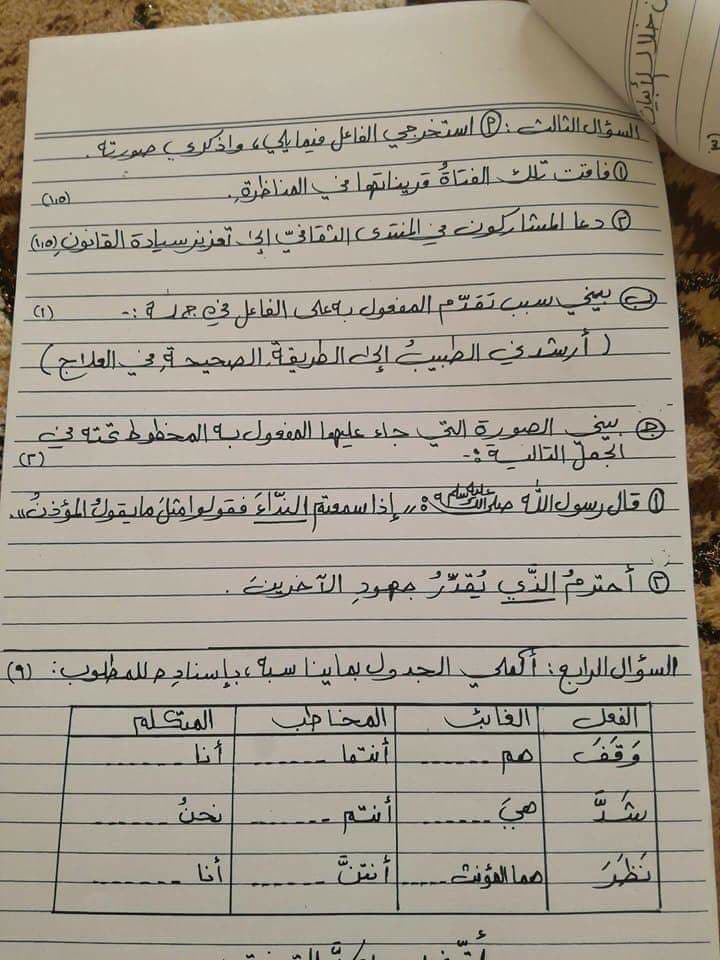 السؤال الثالث: (أ) استخرجي الفاعل فيما يلي، واذكري صورته.
(١) فاقت تلك الفتاةُ قريناتها في المناظرةِ. (١,٥)
(٢) دعا المشاركون في المنتدى الثقافيّ إلى تعزيز سيادة القانونِ (١,٥)
(ب) بيّني سبب تقدّم المفعول به على الفاعل في جملة :- (١)
( أرشدني الطبيبُ إلى الطريقة الصحيحة في العلاج )
(ج) بيّني الصورة التي جاء عليها المفعول به المخطوط تحته في
الجمل التالية :- (٢)
(١) قال رسول الله صلى الله عليه وسلم: "إذا سمعتم النِّداءَ فقولوا مثلَ ما يقولُ المؤذنُ".
(٢) أحترمُ الذَّي يُقدِّرُ جهودِ الآخرينَ.
السؤال الرابع: أكملي الجدول بما يناسبه، بإسنادِهِ للمطلوب: (٩)
الفعل الغائب المخاطب المتكلم
وَقَفَ هم ...... أنتما ------- أنا -------
شَدَّ هيَ ------ أنتم ------- نحنُ -------
نَظَرَ هما المؤنث ----- أنتنَّ ------- أنا -------